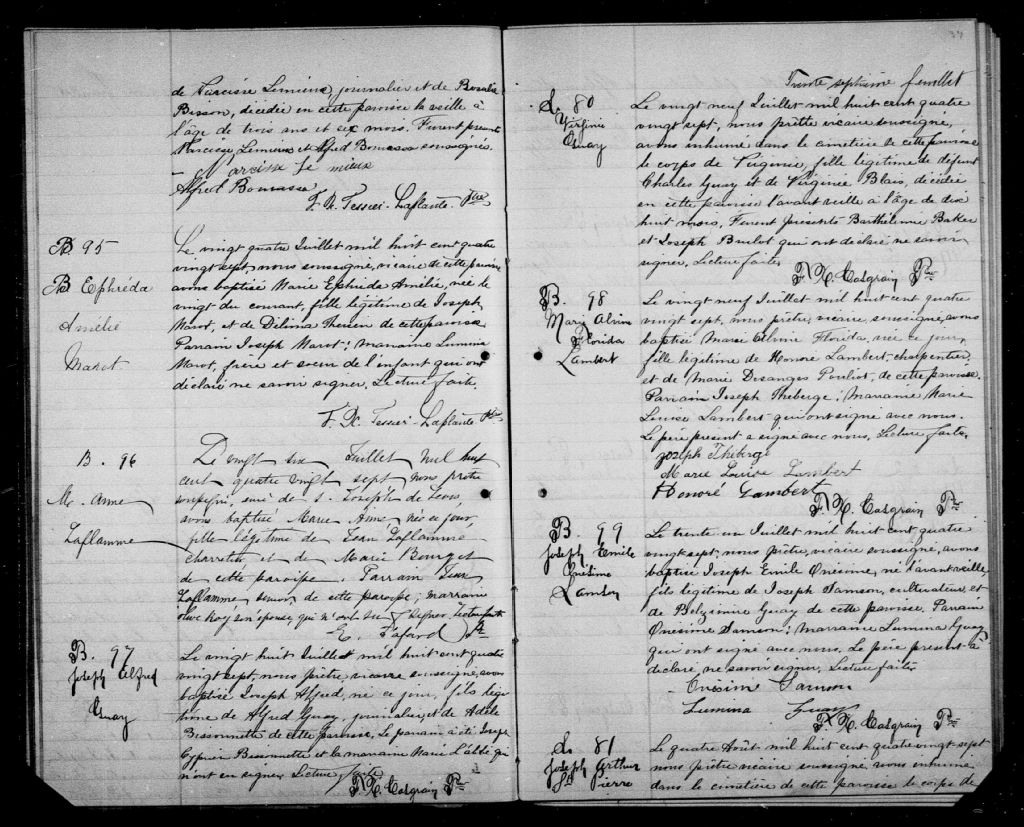 de Narcisse Lemieux, journalier et de Rosalie
Bisson, décédée en cette paroisse la veille à
l'âge de trois ans et six mois. Furent présents
Narcisse Lemieux et Alfred Bourassa soussignés.
Narcisse Le mieux
Alfret Bourassa
F. X. Tessier-Laflante Ptre
B 95
B Ephréda
Amélie
Marot
Le vingt quatre Juillet mil huit cent quatre
vingt sept, nous soussigné, vicaire de cette paroisse
avons baptisé Marie Ephréda Amélie, née le
vingt du courant, fille légitime de Joseph
Marot, et de Délina Therien de cette paroisse
Parrain Joseph Marot; marraine Lumina
Marot, frère et soeur de l'enfant qui ont
déclaré ne savoir signer. Lecture faite.
F. X. Tessier-Laflante Ptre
B. 96
M. Anne
Laflamme
Le vingt six Juillet mil huit
cent quatre vingt sept nous prêtre
soussigné, curé de S. Joseph de Levis,
avons baptisé Marie Anne née ce jour,
fille légitime de Jean Laflamme
charretier et de Marie Bourget
de cette paroisse. Parrain Jean
Laflamme senior, de cette paroisse, marraine
Olive Roy son épouse, qui n'ont su signer. Lecture faite
E. Fafard Ptr
B. 97
Joseph Alfred
Guay
Le vingt huit Juillet mil huit cent quatre
vingt sept, nous prêtre, vicaire soussigné, avons
baptisé Joseph Alfred, né ce jour, fils légi
time de Alfred Guay, journalier, et de Adèle
Bissonnette de cette paroisse. Le parrain a été Joseph
Cyprien Bissonnette et la marraine Marie L'abbé qui
n'ont su signer. Lecture faite
F. X. Casgrain Ptre
Trente septième feuillet
S. 80
Virginie
Guay
Le vingt neuf Juillet mil huit cent quatre
vingt sept, nous prêtre vicaire soussigné,
avons inhumé dans le cimetière de cette paroisse
le corps de Virginie, fille légitime de défunt
Charles Guay et de Virginie Blais, décédée
en cette paroisse l'avant veille à l'âge de dix
huit mois. Furent présents Barthélemie Baker
et Joseph Brulot qui ont déclaré ne savoir
signer. Lecture faite
F. X. Casgrain Ptre
B. 98
Marie Alvine
Florida
Lambert
Le vingt neuf Juillet mil huit cent quatre
vingt sept, nous prêtre, vicaire, soussigné, avons
baptisé Marie Alvine Florida, née ce jour,
fille légitime de Honoré Lambert, charpentier,
et de Marie Desanges Pouliot, de cette paroisse.
Parrain Joseph Theberge; Marraine Marie
Louise Lambert qui ont signé avec nous.
Le père présent a signé avec nous. Lecture faite,
Joseph Theberge
Marie Louise Lambert
Honoré Lambert
F. X. Casgrain Ptre
B. 99
Joseph Emile
Onésime
Samson
Le trente un Juillet mil huit cent quatre
vingt sept, nous prêtre, vicaire soussigné, avons
baptisé Joseph Emile Onésime, né l'avant veille,
fils légitime de Joseph Samson, cultivateur, et
de Belzémire Guay de cette paroisse. Parrain
Onésime Samson; Marraine Lumina Guay
qui ont signé avec nous. Le père présent a
déclaré ne savoir signer. Lecture faite
Onésim Samson
Lumina Guay
F. X. Casgrain Ptre
S. 81
Joseph Arthur
St Pierre
Le quatre Août mil huit cent quatre vingt sept
nous prêtre vicaire soussigné, avons inhumé
dans le cimetière de cette paroisse le corps de